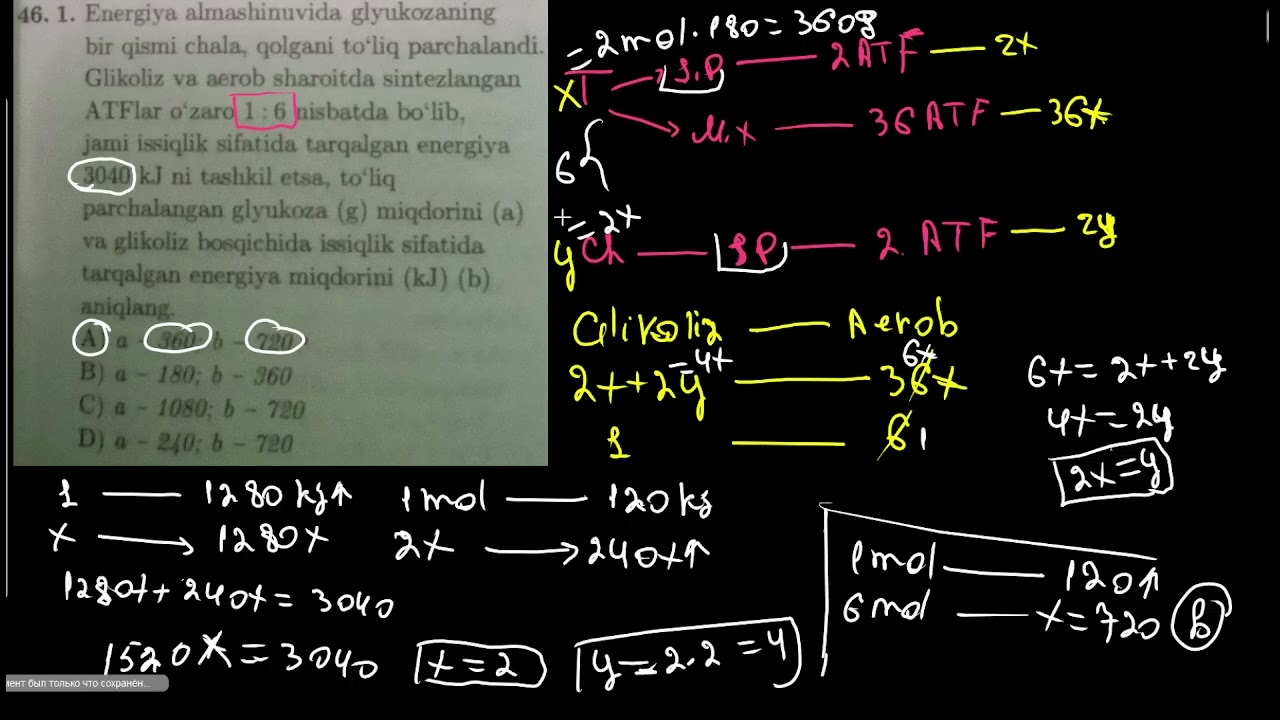 46. 1. Energiya almashinuvida glyukozaning
bir qismi chala, qolgani to‘liq parchalandi.
Glikoliz va aerob sharoitda sintezlangan
ATFlar o‘zaro 1 : 6 nisbatda bo‘lib,
jami issiqlik sifatida tarqalgan energiya
3040 kJ ni tashkil etsa, to‘liq
parchalangan glyukoza (g) miqdorini (a)
va glikoliz bosqichida issiqlik sifatida
tarqalgan energiya miqdorini (kJ) (b)
aniqlang.
A) a – 360; b – 720
B) a – 180; b – 360
C) a – 1080; b – 720
D) a – 240; b – 720
= 2 mol · 180 = 360g
xT S.P — 2 ATF — 2x
M.x — 36 ATF — 36x
6 {
+ = 2x
y Ch — SP — 2. ATF — 2y
Glikoliz — Aerob
= 4x 6x
2x + 2y — 36x
1 — 6 1
6x = 2x + 2y
4x = 2y
2x = y
1 — 1280 kJ↑
x → 1280x
1280x + 240x = 3040
1520x = 3040
x = 2
y = 2.2 = 4
1 mol — 120 kJ
2x → 240x↑
1 mol — 120↑
6 mol — x = 720 B
мент был только что сохранён...